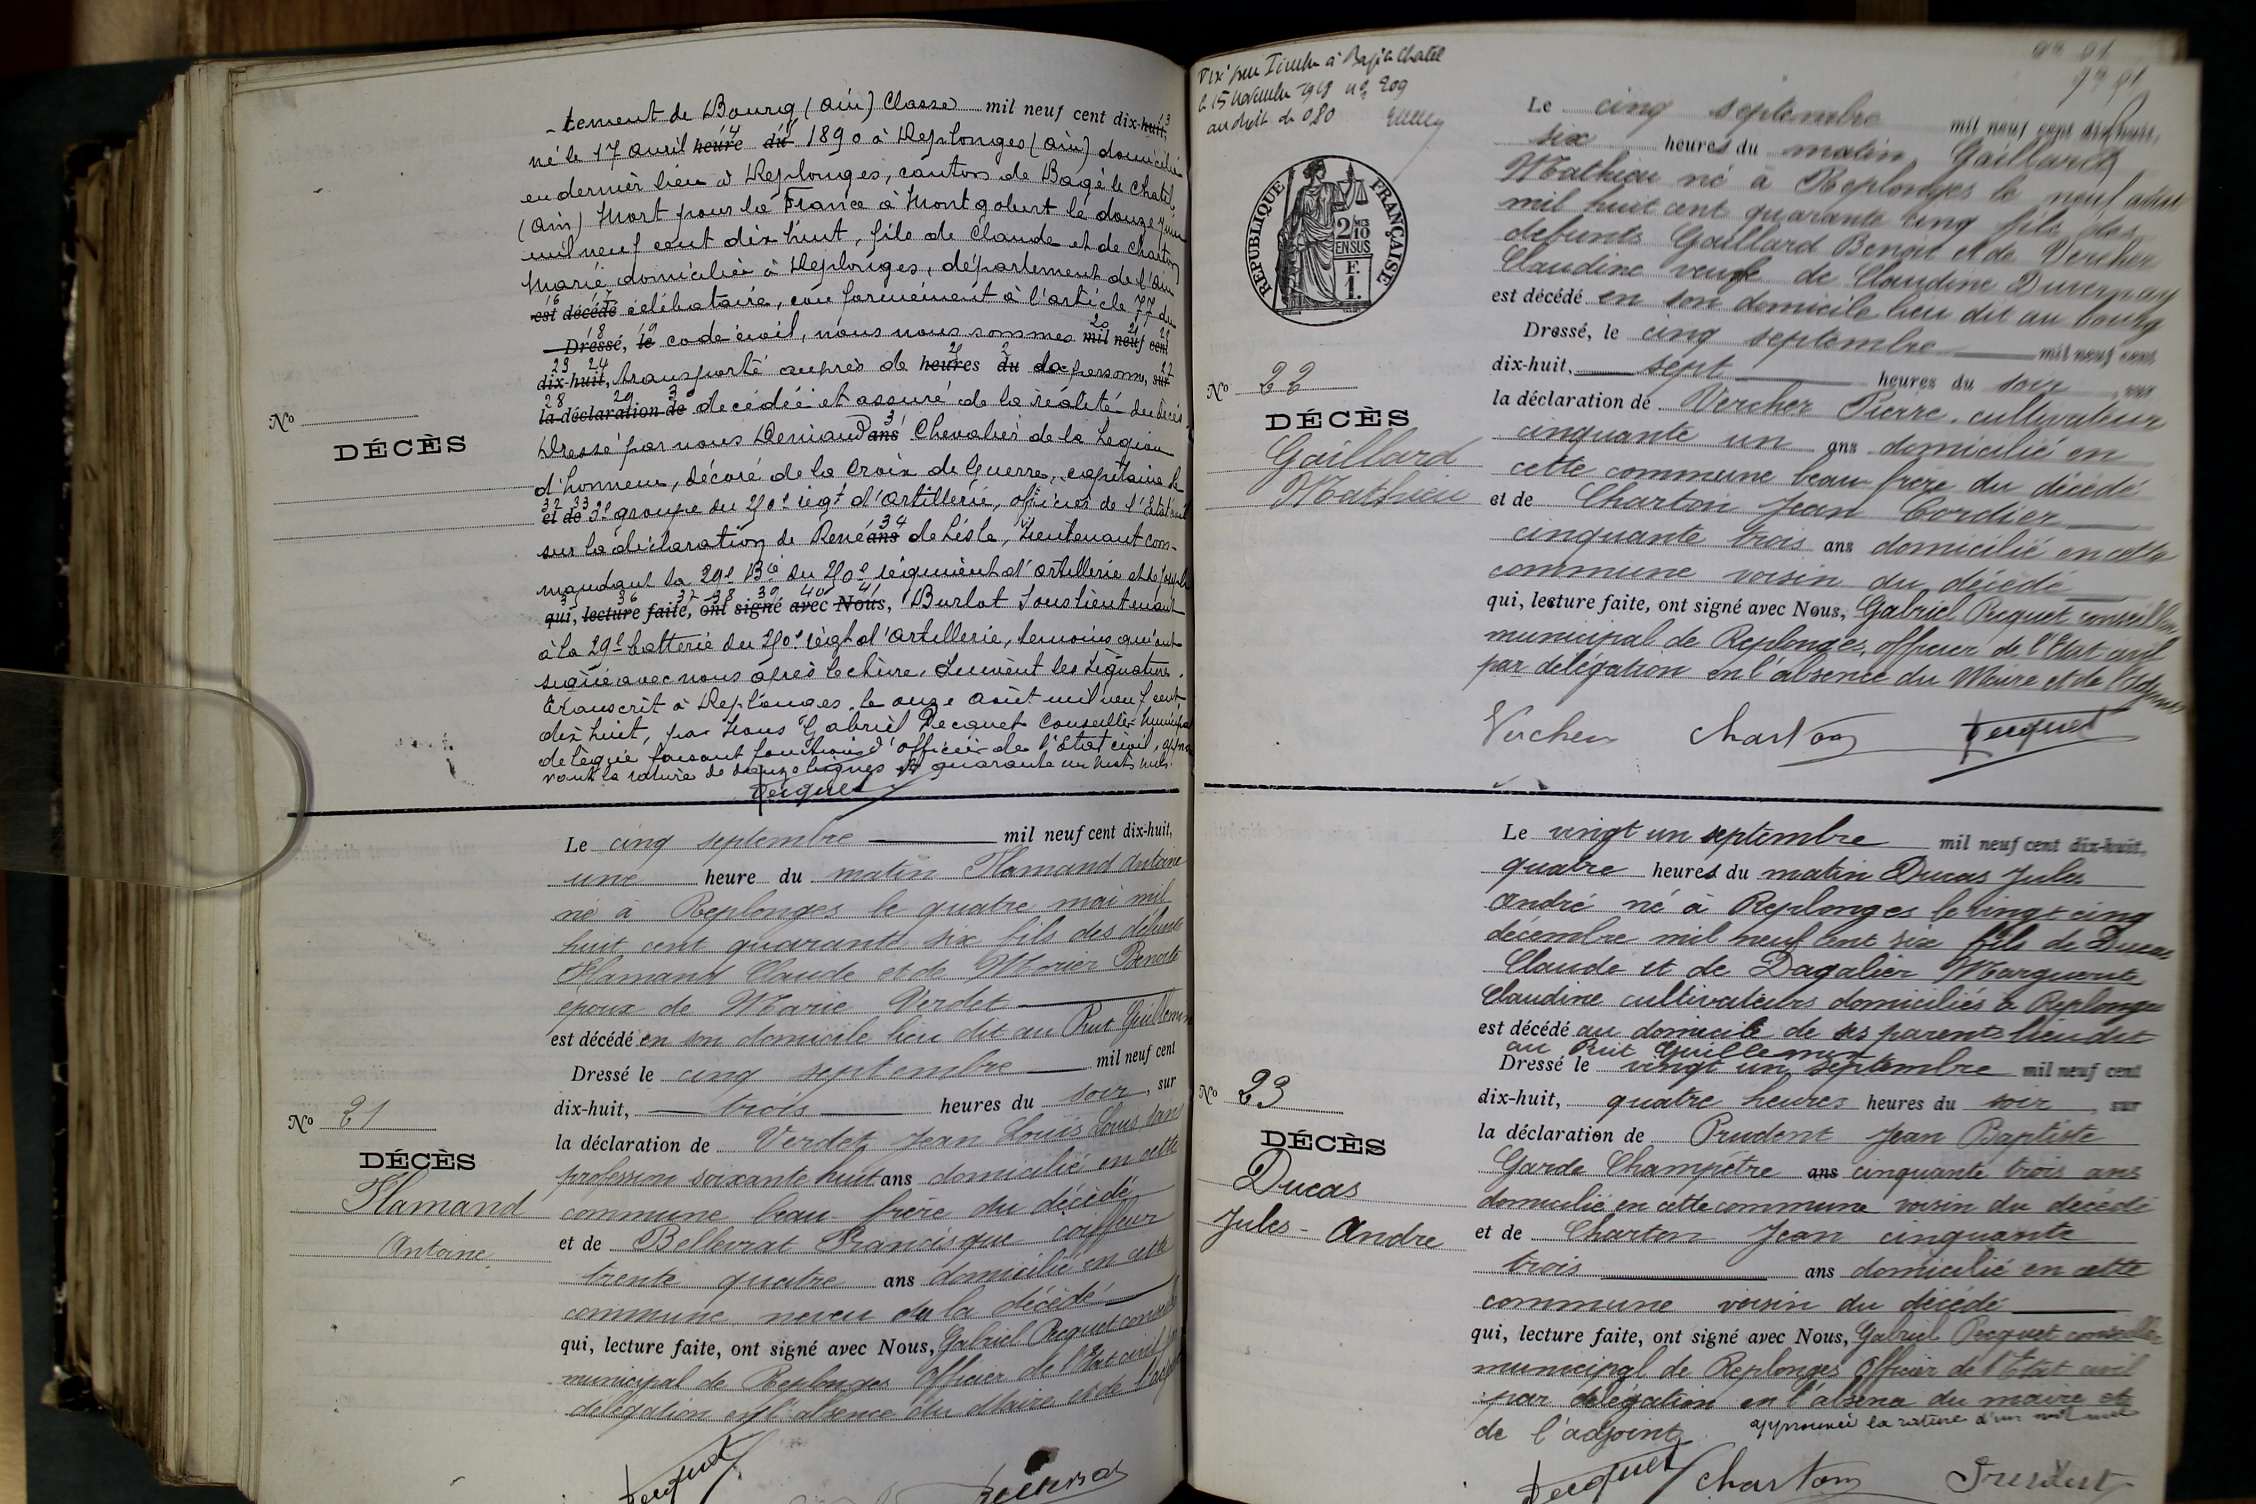 -tement de Bourg (Ain) Classe mil neuf cent dix-huit,
né le 17 avril heure du 1890 à Replonges (Ain) domicilié
en dernier lieu à Replonges, canton de Bagé le Chatel
(Ain) Mort pour la France à Montgobert le douze juin
mil neuf cent dix huit, fils de Claude et de Charton
Marie domiciliés à Replonges, département de l'Ain
est décédé célibataire, conformément à l'article 77 du
Dressé, le code civil, nous nous sommes mil neuf cent
dix-huit, transporté auprès de heures du la personne, sur
la déclaration de décédée et assuré de la réalité du décès
Dressé par nous ans Chevalier de la Légion
d'honneur, décoré de la Croix de Guerre, capitaine
et de groupe du 270e régt d'artillerie, officier de l'Etat civil
sur la déclaration de René ans de Lésle, Lieutenant com-
mandant la 29e Bie du 270e régiment d'artillerie et de
qui, lecture faite, ont signé avec Nous, Burlot Sous lieutenant
à la 29e batterie du 270e régt d'artillerie, témoins qui ont
signé avec nous après lecture. Suivent les signatures.
Transcrit à Replonges, le onze août mil neuf cent
dix huit, par Nous Gabriel Pecquet Conseiller Municipal
délégué faisant fonctions d'officier de l'état civil,
rature de lignes et quarante un mots nuls.
Pecquet
N°
DÉCÈS
Le cinq septembre mil neuf cent dix-huit,
une heure du matin Flamand Antoine
né à Replonges le quatre mai mil
huit cent quarante six fils des défunts
Flamand Claude et de Morier Benoite
époux de Marie Verdet
est décédé en son domicile lieu dit au Puit Guillemin
Dressé le cinq septembre mil neuf cent
dix-huit, trois heures du soir, sur
la déclaration de Verdet Jean Louis sans
profession soixante huit ans domicilié en cette
commune beau frère du décédé
et de Bellevrat Francisque coiffeur
trente quatre ans domicilié en cette
commune neveu du la décédé
qui, lecture faite, ont signé avec Nous, Gabriel Pecquet conseiller
municipal de Replonges Officier de l'Etat civil par
délégation en l'absence du Maire et de l'adjoint
N° 21
DÉCÈS
Flamand
Antoine
Pecquet
Visé pour Timbre à Bagé le Chatel
le 15 novembre 1918 n° 209
au droit de 0,80
RÉPUBLIQUE FRANÇAISE
2/10
EN SUS
F.
1.
N° 22
DÉCÈS
Gaillard
Mathieu
Le cinq septembre mil neuf cent dix-huit,
six heures du matin, Gaillard
Mathieu né à Replonges le neuf août
mil huit cent quarante cinq fils des
défunts Gaillard Benoit et de Vercher
Claudine veuf de Claudine Duvernay
est décédé en son domicile lieu dit au bourg
Dressé, le cinq septembre mil neuf cent
dix-huit, sept heures du soir, sur
la déclaration de Vercher Pierre, cultivateur
cinquante un ans domicilié en
cette commune beau frère du décédé
et de Charton Jean Cordier
cinquante trois ans domicilié en cette
commune voisin du décédé
qui, lecture faite, ont signé avec Nous, Gabriel Pecquet conseiller
municipal de Replonges, officier de l'Etat civil
par délégation en l'absence du Maire et de l'Adjoint
Vercher Charton Pecquet
Le vingt un septembre mil neuf cent dix-huit,
quatre heures du matin Ducas Jules
André né à Replonges le vingt cinq
décembre mil neuf cent six fils de Ducas
Claude et de Dagalier Marguerite
Claudine cultivateurs domiciliés à Replonges
est décédé au domicile de ses parents lieu dit
au Puit Guillemin
Dressé le vingt un septembre mil neuf cent
dix-huit, quatre heures heures du soir, sur
la déclaration de Prudent Jean Baptiste
Garde Champêtre ans cinquante trois ans
domicilié en cette commune voisin du décédé
et de Charton Jean cinquante
trois ans domicilié en cette
commune voisin du décédé
qui, lecture faite, ont signé avec Nous, Gabriel Pecquet conseiller
municipal de Replonges Officier de l'Etat civil
par délégation en l'absence du maire et
de l'adjoint approuvé la rature d'un mot nul
N° 23
DÉCÈS
Ducas
Jules - André
Pecquet Charton Prudent